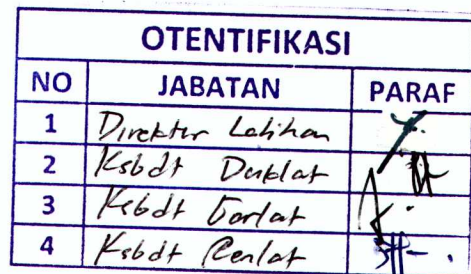 OTENTIFIKASI
NO JABATAN PARAF
1 Direktur Latihan
2 Ksbdt Duklat
3 Ksbdt Gorlat
4 Ksbdt Renlat